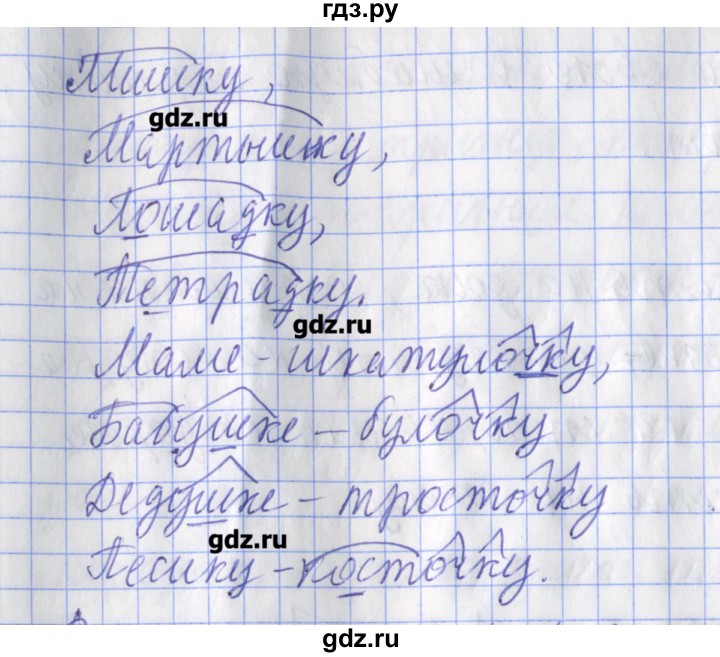 гдз.ру
Мишку,
gdz.ru
Мартышку,
Лошадку,
Тетрадку.
gdz.ru
Маме - шкатулочку,
Бабушке - булочку
Дедушке - тросточку
gdz.ru
Песику - косточку.
gdz.ru